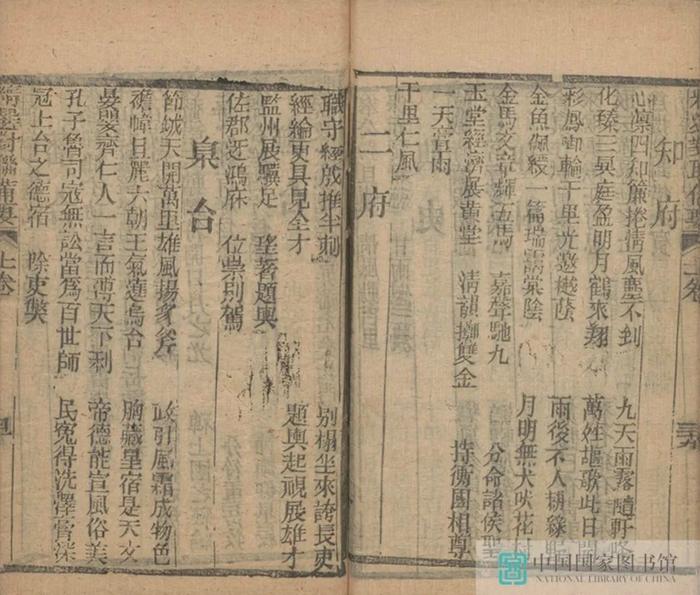 知府
心凜四知簾捲清風塵不到 九天雨露隨軒
化臻三異庭盈明月鶴來翔 萬姓謳歌此日
彩鳳御輪千里光邀樾蔭 雨後 人耕綠
金魚佩綬一篇瑞靄棠陰 月明無犬吠花
金馬文章輝五馬 嘉聲馳九 分命諸侯聖
玉堂經濟展黃堂 清韻擲雙金 持衡國相尊
一天膏雨
千里仁風
二府
職守經 推半刺 別榻坐來誇長史
經綸更具見全才 題輿起視展雄才
監州展驥足 望著題輿
佐郡近 位崇別駕
臬台
節鉞天開萬里雄風揚豸斧 政引風霜成物色
襜幃日麗六朝王氣遶烏台 胸藏星宿是天文
晏嬰齊仁人一言而溥天下利 帝德能宣風俗美
孔子魯司寇無訟當為百世師 民冤得洗澤膏深
冠上台之德宿 除吏獘
對聯備要 上卷
中国国家图书馆
NATIONAL LIBRARY OF CHINA